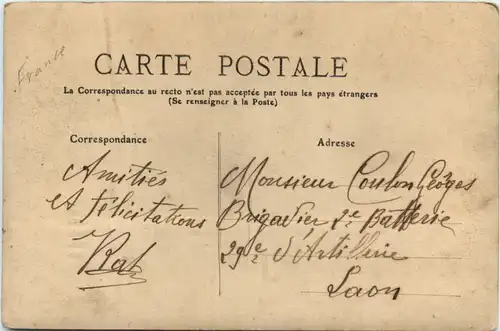 France
CARTE POSTALE
La Correspondance au recto n'est pas acceptée par tous les pays étrangers
(Se renseigner à la Poste)
Correspondance
Amitiés
et félicitations
Adresse
Monsieur Coulon Georges
Brigadier 2e Batterie
29e d'Artillerie
Laon